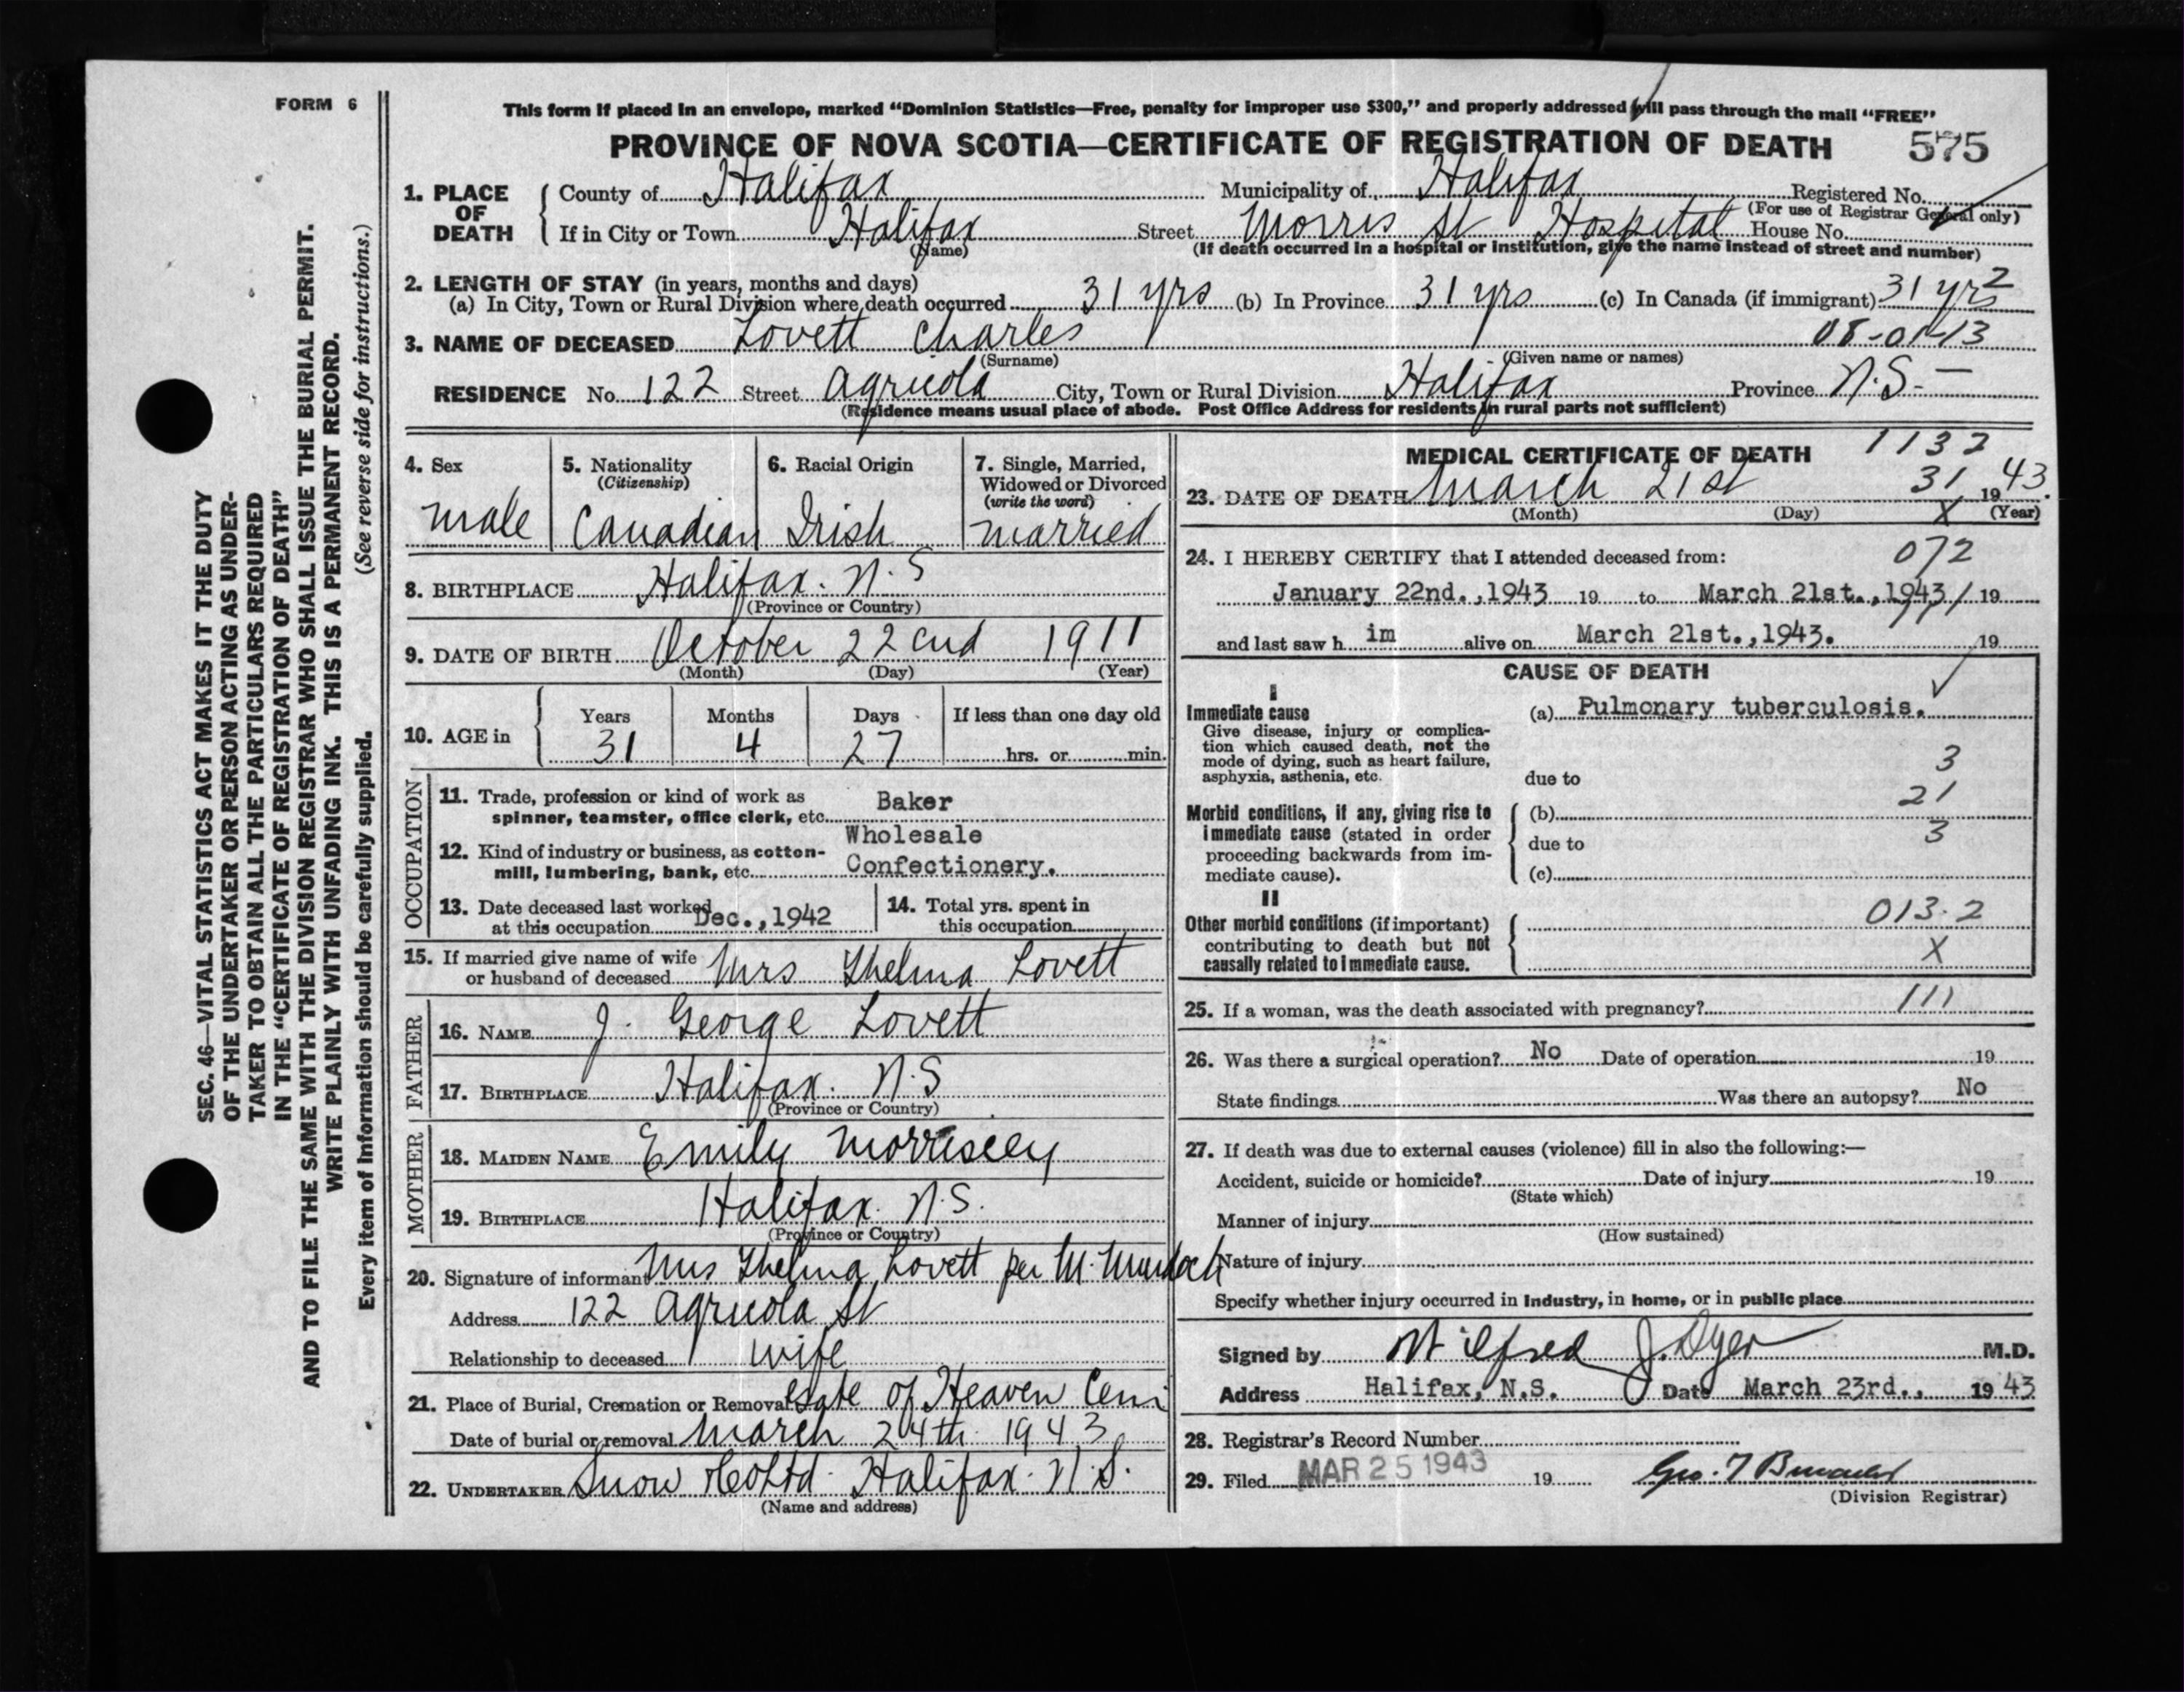 FORM 6
This form if placed in an envelope, marked "Dominion Statistics—Free, penalty for improper use $300," and properly addressed will pass through the mail "FREE"
PROVINCE OF NOVA SCOTIA—CERTIFICATE OF REGISTRATION OF DEATH 575
1. PLACE OF DEATH County of Halifax Municipality of Halifax Registered No.
(For use of Registrar General only)
If in City or Town Halifax Street Morris St Hospital House No.
(Name) (If death occurred in a hospital or institution, give the name instead of street and number)
2. LENGTH OF STAY (in years, months and days)
(a) In City, Town or Rural Division where death occurred 31 yrs (b) In Province 31 yrs (c) In Canada (if immigrant) 31 yrs 2
3. NAME OF DECEASED Lovett Charles 08-01-13
(Surname) (Given name or names)
RESIDENCE No. 122 Street Agricola City, Town or Rural Division Halifax Province N.S. —
(Residence means usual place of abode. Post Office Address for residents in rural parts not sufficient)
4. Sex
male
5. Nationality
(Citizenship)
Canadian
6. Racial Origin
Irish
7. Single, Married,
Widowed or Divorced
(write the word)
married
8. BIRTHPLACE Halifax. N.S
(Province or Country)
9. DATE OF BIRTH October 22cnd 1911
(Month) (Day) (Year)
10. AGE in
Years Months Days If less than one day old
31 4 27 hrs. or min.
OCCUPATION
11. Trade, profession or kind of work as
spinner, teamster, office clerk, etc. Baker
12. Kind of industry or business, as cotton-
mill, lumbering, bank, etc. Wholesale
Confectionery.
13. Date deceased last worked
at this occupation Dec.,1942
14. Total yrs. spent in
this occupation
15. If married give name of wife
or husband of deceased Mrs Thelma Lovett
FATHER
16. NAME J. George Lovett
17. BIRTHPLACE Halifax. N.S
(Province or Country)
MOTHER
18. MAIDEN NAME Emily Morriscey
19. BIRTHPLACE Halifax. N.S.
(Province or Country)
20. Signature of informant Mrs Thelma Lovett per M. Murdoch
Address 122 Agricola St
Relationship to deceased wife
21. Place of Burial, Cremation or Removal Gate of Heaven Cem
Date of burial or removal March 24th 1943
22. UNDERTAKER Snow & Co Ltd. Halifax. N.S.
(Name and address)
MEDICAL CERTIFICATE OF DEATH 1132
23. DATE OF DEATH March 21st 31 1943.
(Month) (Day) X (Year)
24. I HEREBY CERTIFY that I attended deceased from: 072
January 22nd.,1943 19 to March 21st.,1943 19
and last saw h im alive on March 21st.,1943. 19
CAUSE OF DEATH
I
Immediate cause
Give disease, injury or complica-
tion which caused death, not the
mode of dying, such as heart failure,
asphyxia, asthenia, etc.
(a) Pulmonary tuberculosis.
3
due to
21
Morbid conditions, if any, giving rise to
immediate cause (stated in order
proceeding backwards from im-
mediate cause).
(b)
due to 3
(c)
II
Other morbid conditions (if important)
contributing to death but not
causally related to immediate cause.
013.2
X
25. If a woman, was the death associated with pregnancy? 111
26. Was there a surgical operation? No Date of operation 19
State findings Was there an autopsy? No
27. If death was due to external causes (violence) fill in also the following:—
Accident, suicide or homicide? Date of injury 19
(State which)
Manner of injury
(How sustained)
Nature of injury
Specify whether injury occurred in industry, in home, or in public place
Signed by Wilfred J. Dyer M.D.
Address Halifax, N.S. Date March 23rd., 1943
28. Registrar's Record Number
29. Filed MAR 25 1943 19 Geo. T
(Division Registrar)
SEC. 46—VITAL STATISTICS ACT MAKES IT THE DUTY
OF THE UNDERTAKER OR PERSON ACTING AS UNDER-
TAKER TO OBTAIN ALL THE PARTICULARS REQUIRED
IN THE "CERTIFICATE OF REGISTRATION OF DEATH"
AND TO FILE THE SAME WITH THE DIVISION REGISTRAR WHO SHALL ISSUE THE BURIAL PERMIT.
WRITE PLAINLY WITH UNFADING INK. THIS IS A PERMANENT RECORD.
Every item of information should be carefully supplied. (See reverse side for instructions.)